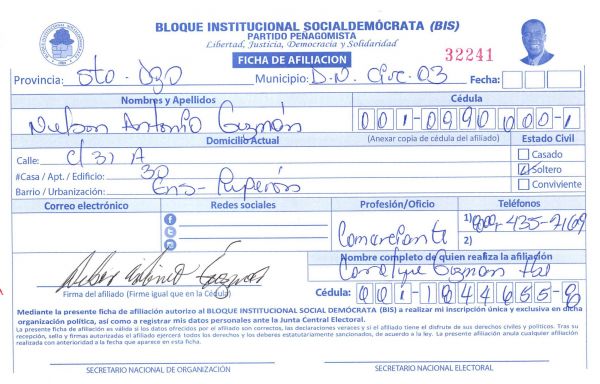 BLOQUE INSTITUCIONAL SOCIALDEMÓCRATA (BIS)
PARTIDO PEÑAGOMISTA
Libertad, Justicia, Democracia y Solidaridad
FICHA DE AFILIACION
32241
Provincia: Sto. Dgo Municipio: D.N. Circ. 03 Fecha:
Nombres y Apellidos Cédula
Nielson Antonio Guzmán 001-0990000-1
Domicilio Actual (Anexar copia de cédula del afiliado) Estado Civil
Calle: C/ 31 A
Casado
#Casa / Apt. / Edificio: 30
Soltero
Barrio / Urbanización: Ens- Luperón
Conviviente
Correo electrónico Redes sociales Profesión/Oficio Teléfonos
Comerciante
1) 435-7169
2)
Nombre completo de quien realiza la afiliación
Guzman
Firma del afiliado (Firme igual que en la Cédula)
Cédula: 001-1844655-8
Mediante la presente ficha de afiliación autorizo al BLOQUE INSTITUCIONAL SOCIAL DEMÓCRATA (BIS) a realizar mi inscripción única y exclusiva en dicha
organización política, así como a registrar mis datos personales ante la Junta Central Electoral.
La presente ficha de afiliación es válida si los datos ofrecidos por el afiliado son correctos, las declaraciones veraces y si el afiliado tiene el disfrute de sus derechos civiles y políticos. Tras su
recepción, sello y firmas autorizadas el afiliado ejercerá todos los derechos y los deberes estatutariamente sancionados, de acuerdo a la ley. La presente afiliación anula cualquier afiliación
realizada con anterioridad a la fecha que aparece en esta ficha.
SECRETARIO NACIONAL DE ORGANIZACIÓN SECRETARIO NACIONAL ELECTORAL